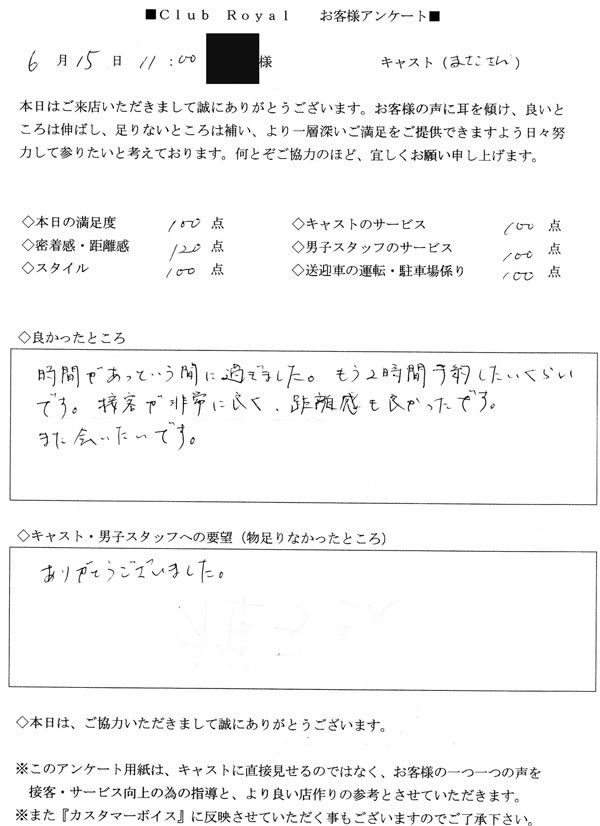 ■Club Royal お客様アンケート■
6月15日 11:00 様 キャスト(まなこさん)
本日はご来店いただきまして誠にありがとうございます。お客様の声に耳を傾け、良いと
ころは伸ばし、足りないところは補い、より一層深いご満足をご提供できますよう日々努
力して参りたいと考えております。何とぞご協力のほど、宜しくお願い申し上げます。
◇本日の満足度 100点 ◇キャストのサービス 100点
◇密着感・距離感 120点 ◇男子スタッフのサービス 100点
◇スタイル 100点 ◇送迎車の運転・駐車場係り 100点
◇良かったところ
時間があっという間に過ぎました。もう2時間予約したいくらい
です。接客が非常に良く、距離感も良かったです。
また会いたいです。
◇キャスト・男子スタッフへの要望（物足りなかったところ）
ありがとうございました。
◇本日は、ご協力いただきまして誠にありがとうございます。
※このアンケート用紙は、キャストに直接見せるのではなく、お客様の一つ一つの声を
接客・サービス向上の為の指導と、より良い店作りの参考とさせていただきます。
※また『カスタマーボイス』に反映させていただく事もございますのでご了承下さい。